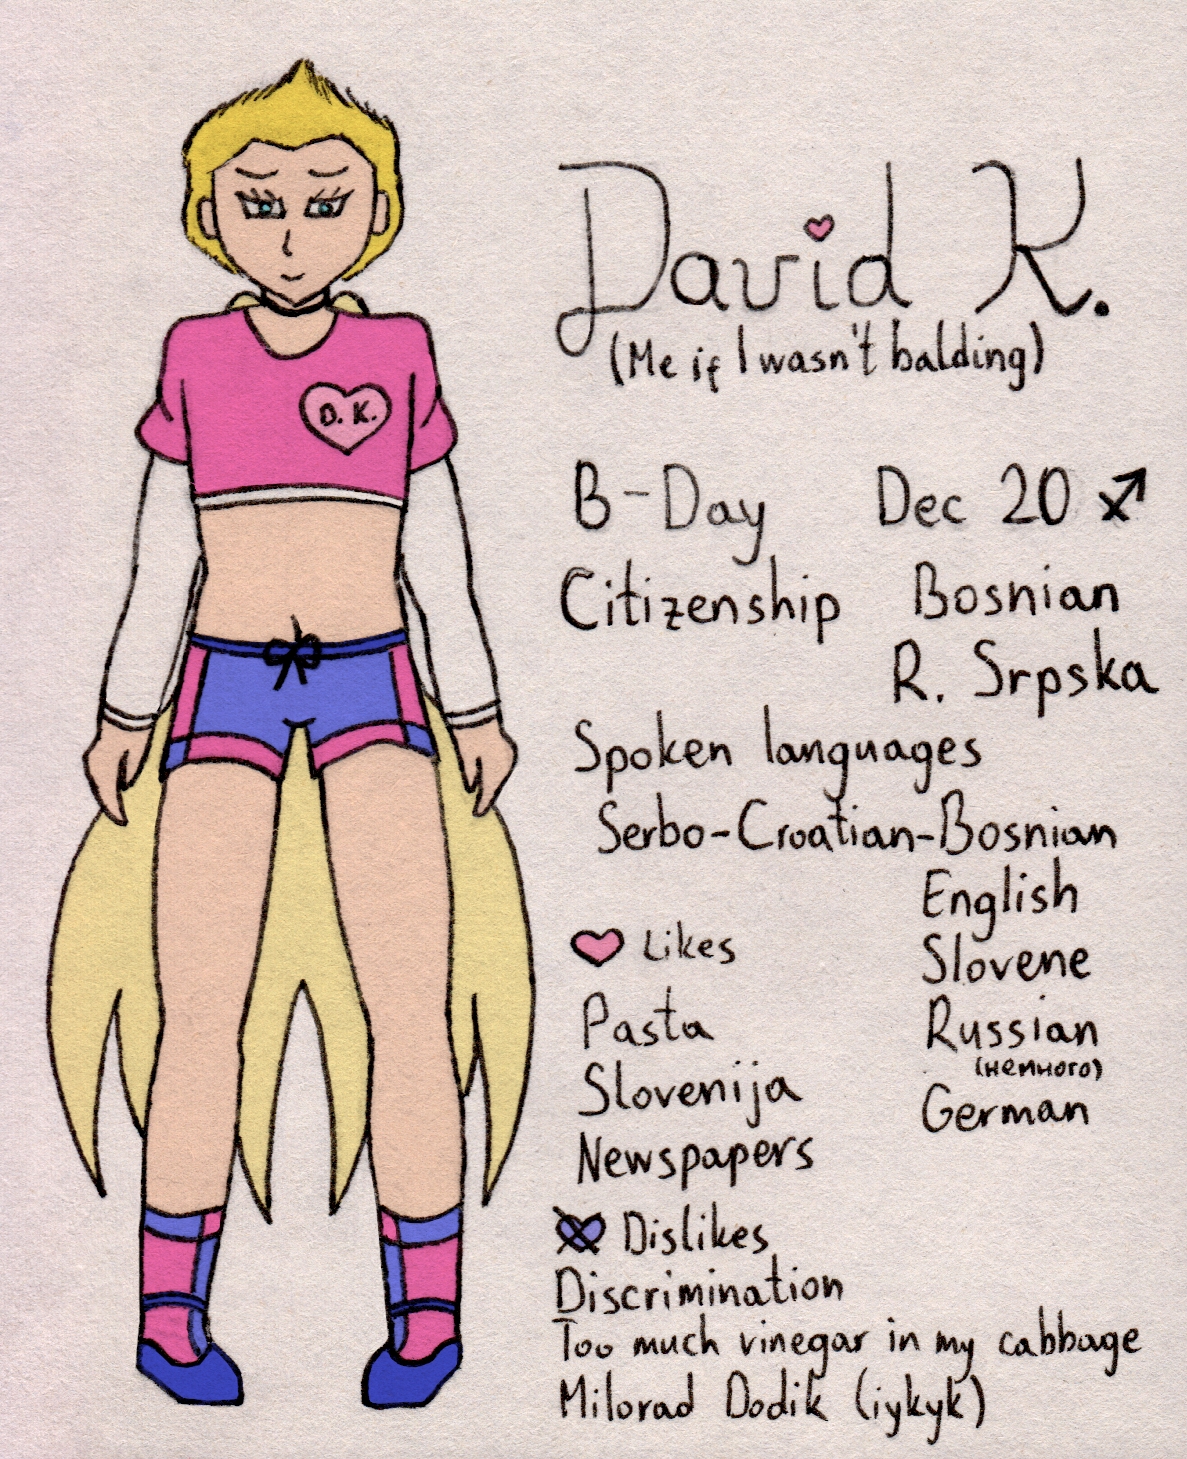 David K.
(Me if I wasn't balding)
D. K.
B-Day Dec 20 ♐
Citizenship Bosnian
R. Srpska
Spoken languages
Serbo-Croatian-Bosnian
English
Slovene
Russian
(немного)
German
Likes
Pasta
Slovenija
Newspapers
Dislikes
Discrimination
Too much vinegar in my cabbage
Milorad Dodik (iykyk)